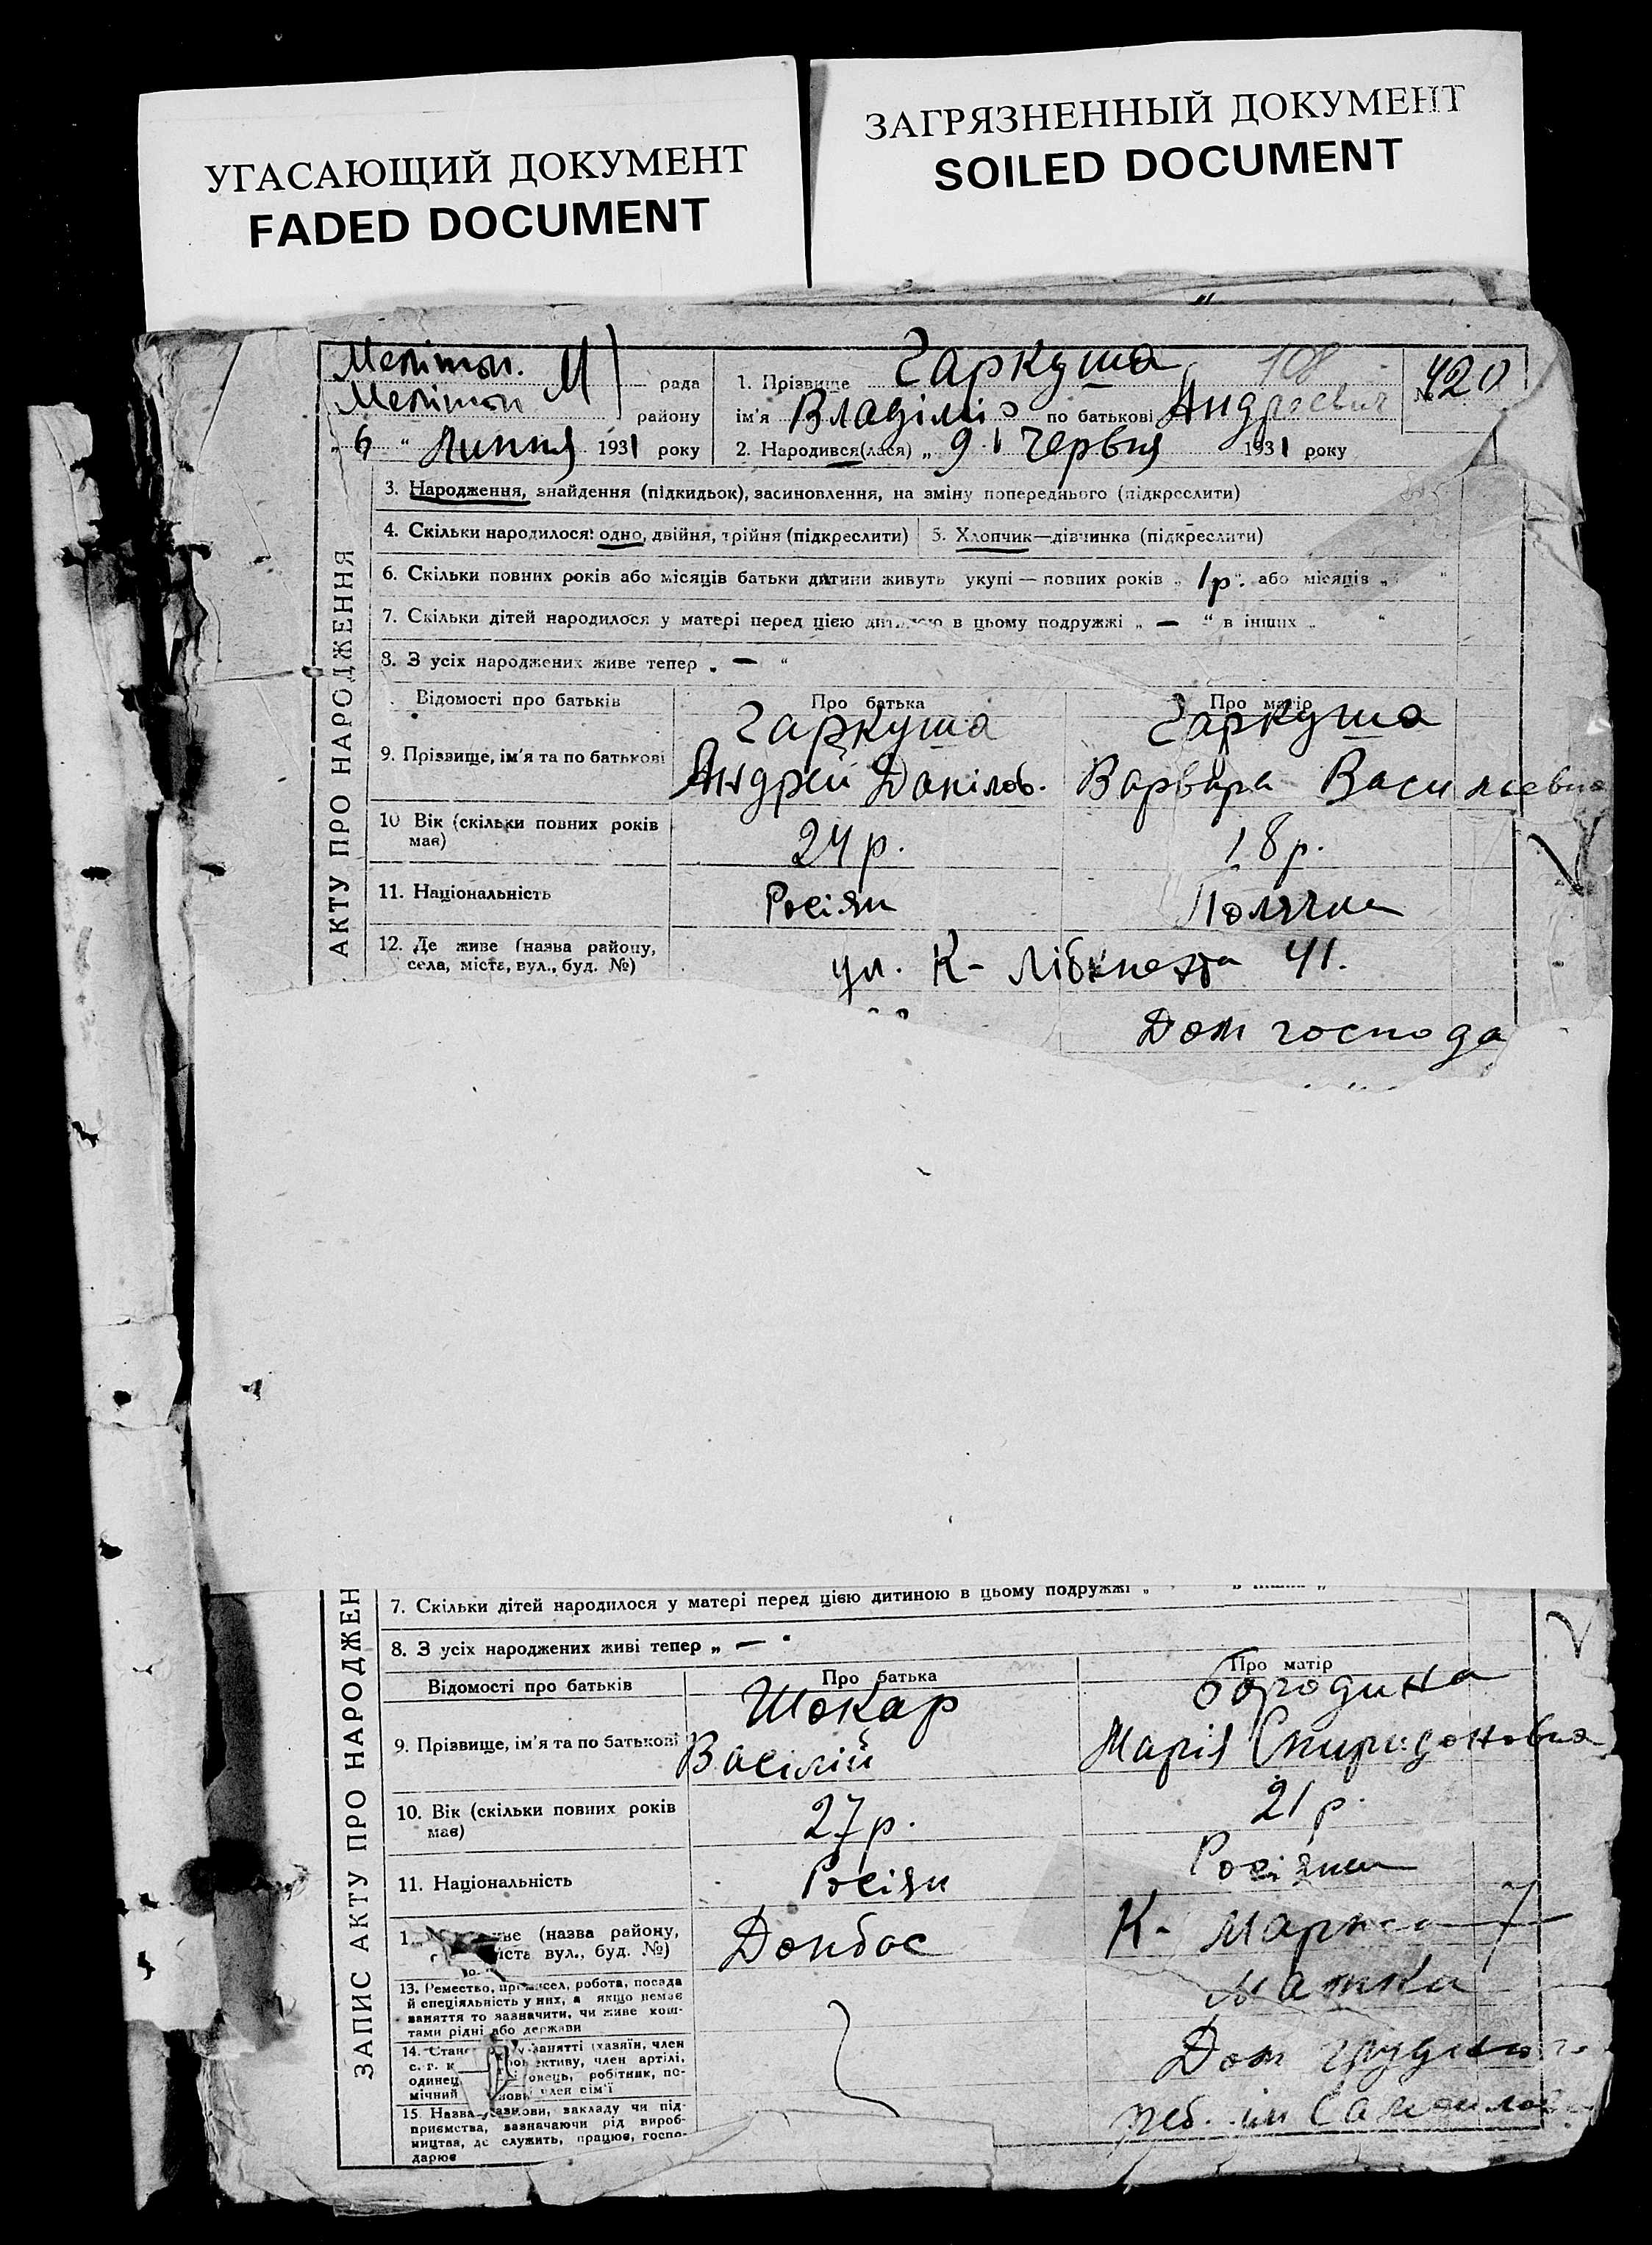 УГАСАЮЩИЙ ДОКУМЕНТ
FADED DOCUMENT
ЗАГРЯЗНЕННЫЙ ДОКУМЕНТ
SOILED DOCUMENT
АКТУ ПРО НАРОДЖЕННЯ
Мелітоп. М рада
Мелітоп району
„ 6 “ Липня 1931 року
1. Прізвище Гаркуша 108
ім'я Владімір по батькові Андреевич
№ 420
2. Народився(лася) „ 9 " Червня 1931 року
3. Народження, знайдення (підкидьок), засиновлення, на зміну попереднього (підкреслити)
4. Скільки народилося: одно, двійня, трійня (підкреслити)
5. Хлопчик—дівчинка (підкреслити)
6. Скільки повних років або місяців батьки дитини живуть укупі — повних років „ 1р. “ або місяців „ “
7. Скільки дітей народилося у матері перед цією дитиною в цьому подружжі „ — “ в інших „ “
8. З усіх народжених живе тепер „ — “
Відомості про батьків
Про батька
Про матір
9. Прізвище, ім'я та по батькові
Гаркуша
Андрей Данілов.
Гаркуша
Варвара Васильевна
10 Вік (скільки повних років має)
24 р.
18 р.
11. Національність
Росіян
Полячка
12. Де живе (назва району,
села, міста, вул., буд. №)
ул. К- Лібкнехта 41.
Дом господа
ЗАПИС АКТУ ПРО НАРОДЖЕН
7. Скільки дітей народилося у матері перед цією дитиною в цьому подружжі „
8. З усіх народжених живі тепер „ — “
Відомості про батьків
Про батька
Про матір
9. Прізвище, ім'я та по батькові
Шокар
Васілій
Бородина
Марія Спиридоновна
10. Вік (скільки повних років
має)
27 р.
21 р.
11. Національність
Росіян
Росіянка
(назва району,
вул., буд. №)
Донбас
К- Маркса 7
13. Ремество, промисел, робота, посада
й спеціяльність у них, а якщо немає
заняття то зазначити, чи живе кош-
тами рідні або держави
мамка
14. Стан у занятті (хазяїн, член
с. г. колективу, член артілі,
одинец робітник, по-
мічний член сім'ї
Дом грудного
15. Назва установи, закладу чи під-
приємства, зазначаючи рід вироб-
ництва, де служить, працює, госпо-
дарює
реб. им Самойлова